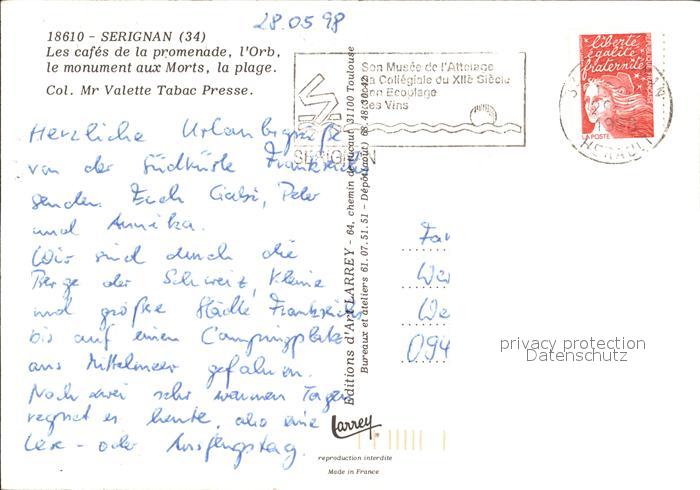 28.05.98
18610 - SERIGNAN (34)
Les cafés de la promenade, l'Orb,
le monument aux Morts, la plage.
Col. Mr Valette Tabac Presse.
Son Musée de l'Attelage
La Collégiale du XIIè Siècle
Son Ecoplage
Ses Vins
SERIGNAN
liberté
égalité
fraternité
REPUBLIQUE FRANÇAISE
LA POSTE
HERAULT
Herzliche Urlaubsgrüße
von der Südküste Frankreichs
senden Euch Gabi, Peter
und Annika.
Wir sind durch die
Berge der Schweiz, kleine
und große Städte Frankreichs
bis auf einen Campingplatz
ans Mittelmeer gefahren.
Nach zwei sehr warmen Tagen
regnet es heute, also eine
Lese- oder Ausflugstag.
Editions d'Art LARREY - 64, chemin 31100 Toulouse
Bureaux et ateliers 61.07.51.51 - Dépôt 68.48.30.42
Fa
We
We
094
privacy protection
Datenschutz
Larrey
reproduction interdite
Made in France